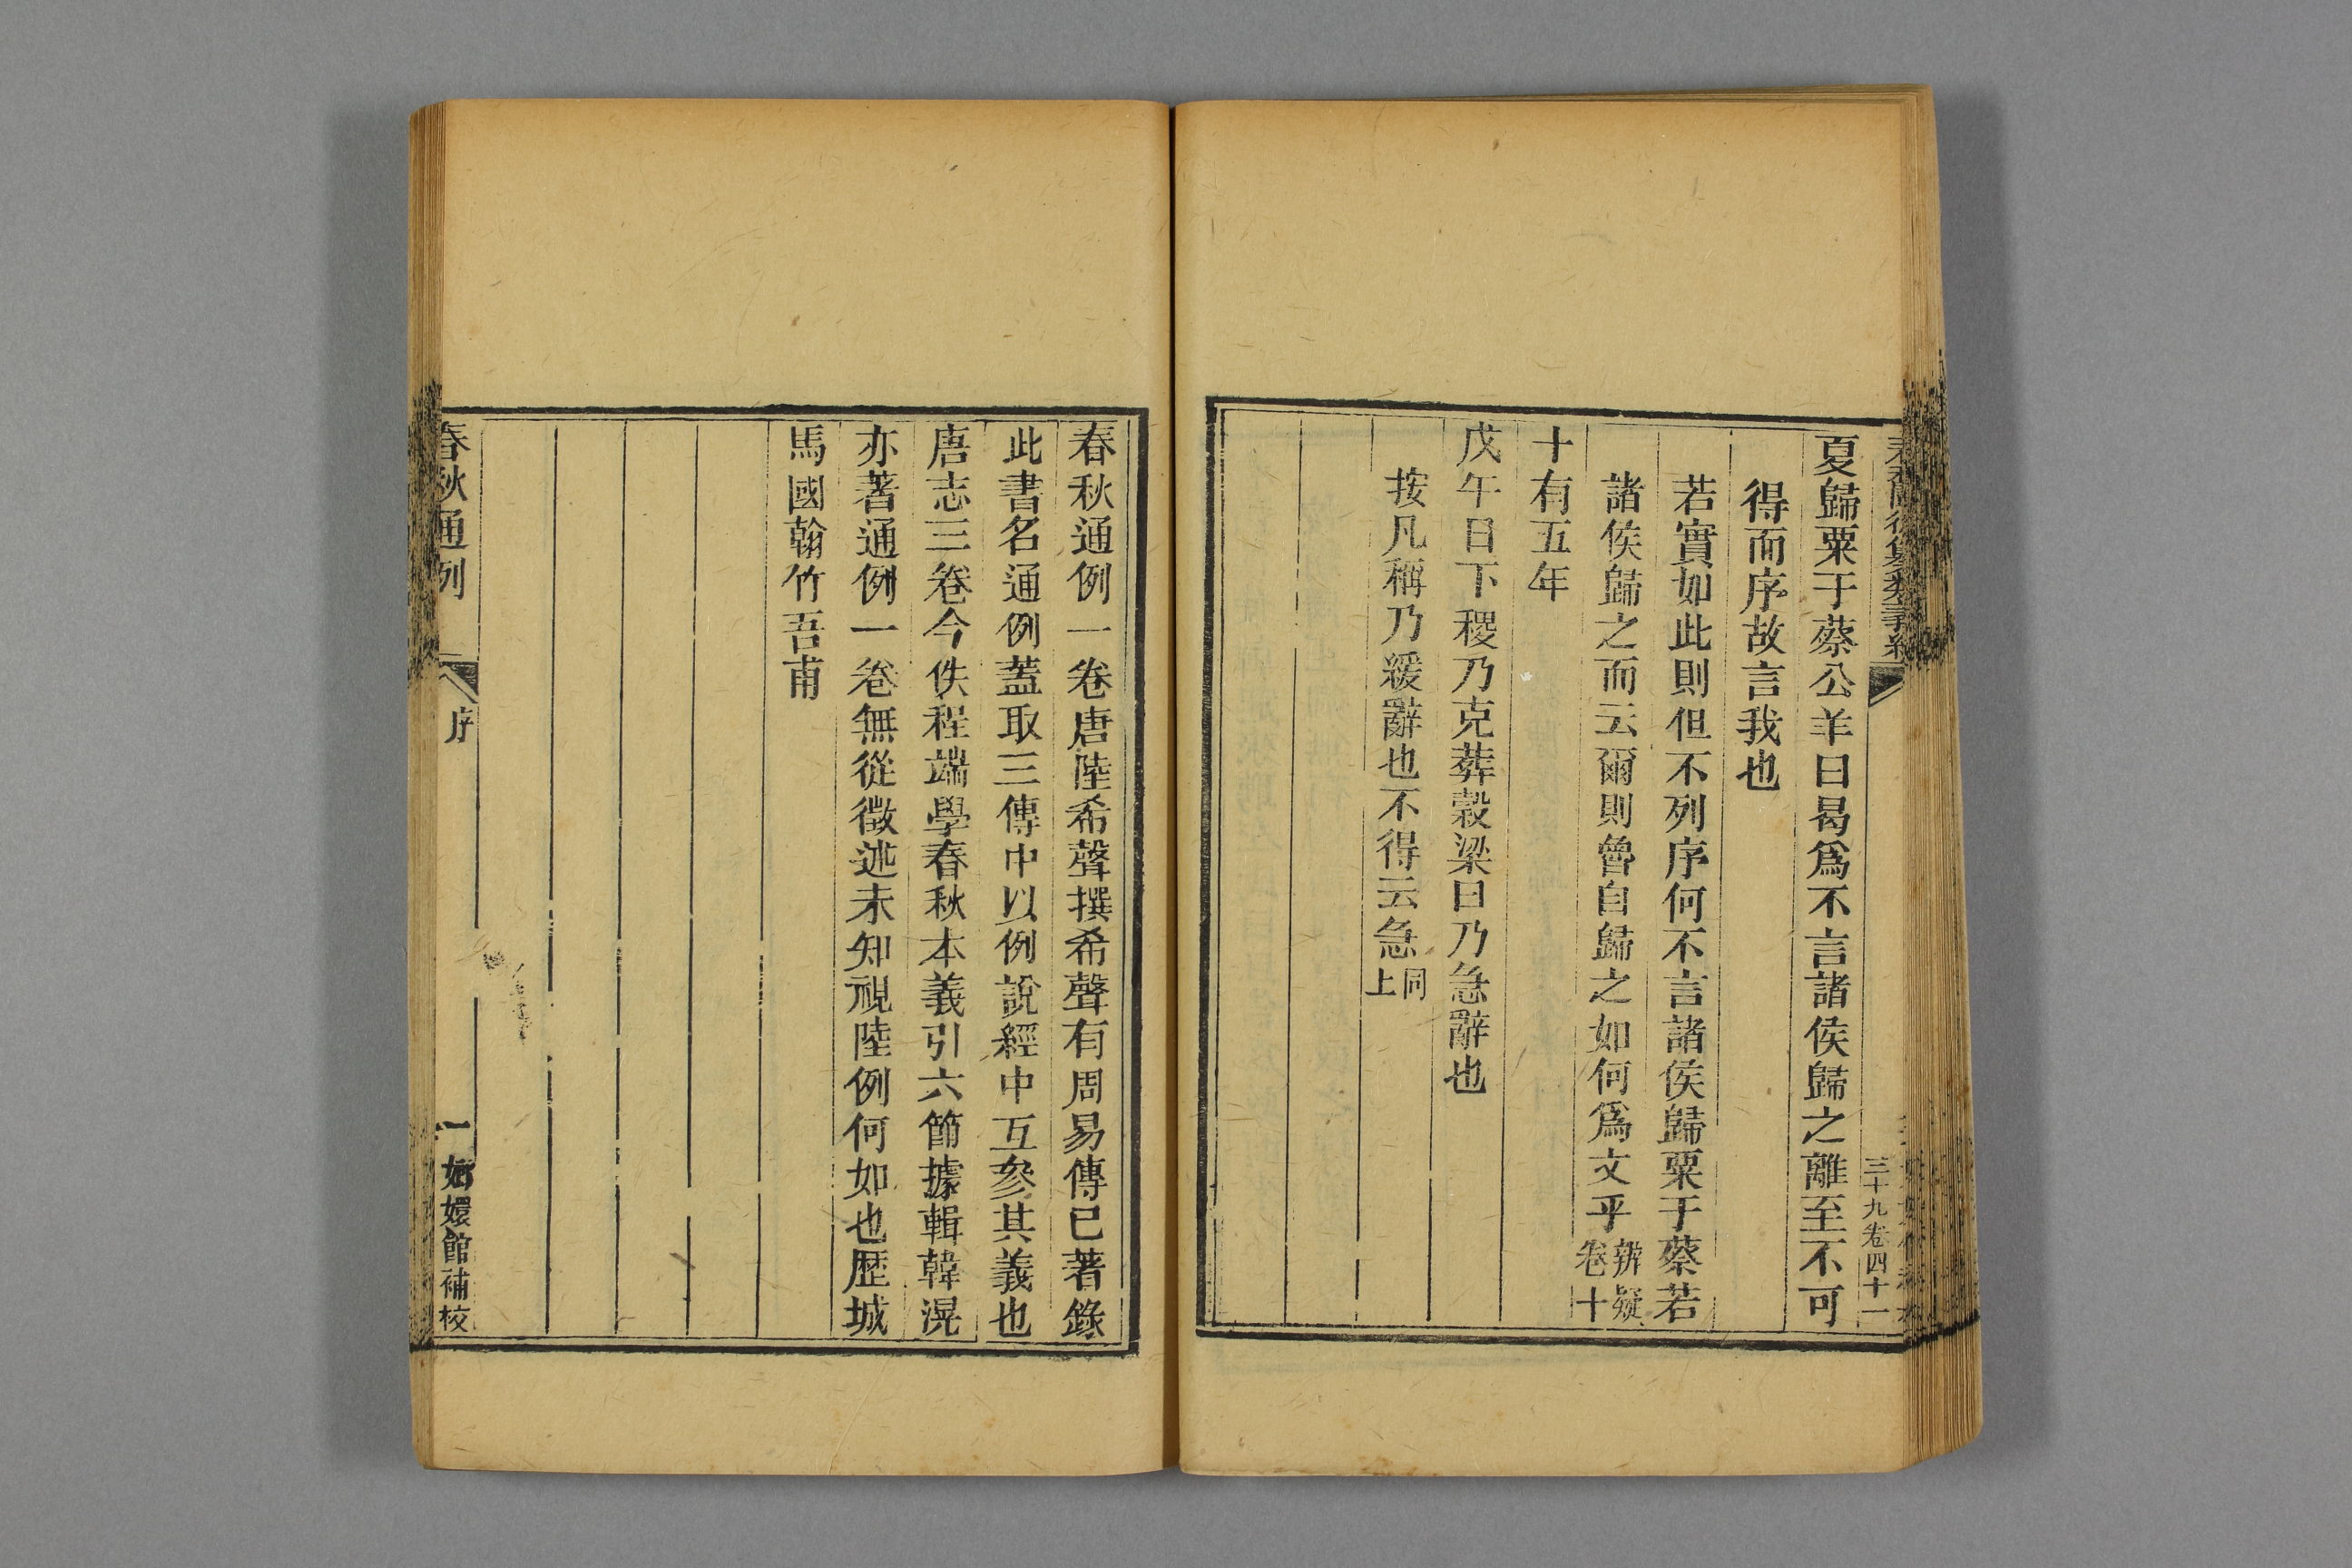 三十九卷四十一
夏歸粟于蔡公羊曰曷爲不言諸侯歸之離至不可
得而序故言我也
若實如此則但不列序何不言諸侯歸粟于蔡若
諸侯歸之而云爾則魯自歸之如何爲文乎辨疑卷十
十有五年
戊午日下稷乃克葬榖梁曰乃急辭也
按凡稱乃緩辭也不得云急同上
春秋通例一卷唐陸希聲撰希聲有周易傳已著錄
此書名通例蓋取三傳中以例說經中互參其義也
唐志三卷今佚程端學春秋本義引六節據輯韓滉
亦著通例一卷無從徵述未知視陸例何如也歷城
馬國翰竹吾甫
春秋通例
序
一
嫏嬛館補校